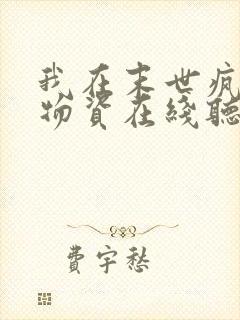 我在末世疯
物资在线听
費宇愁